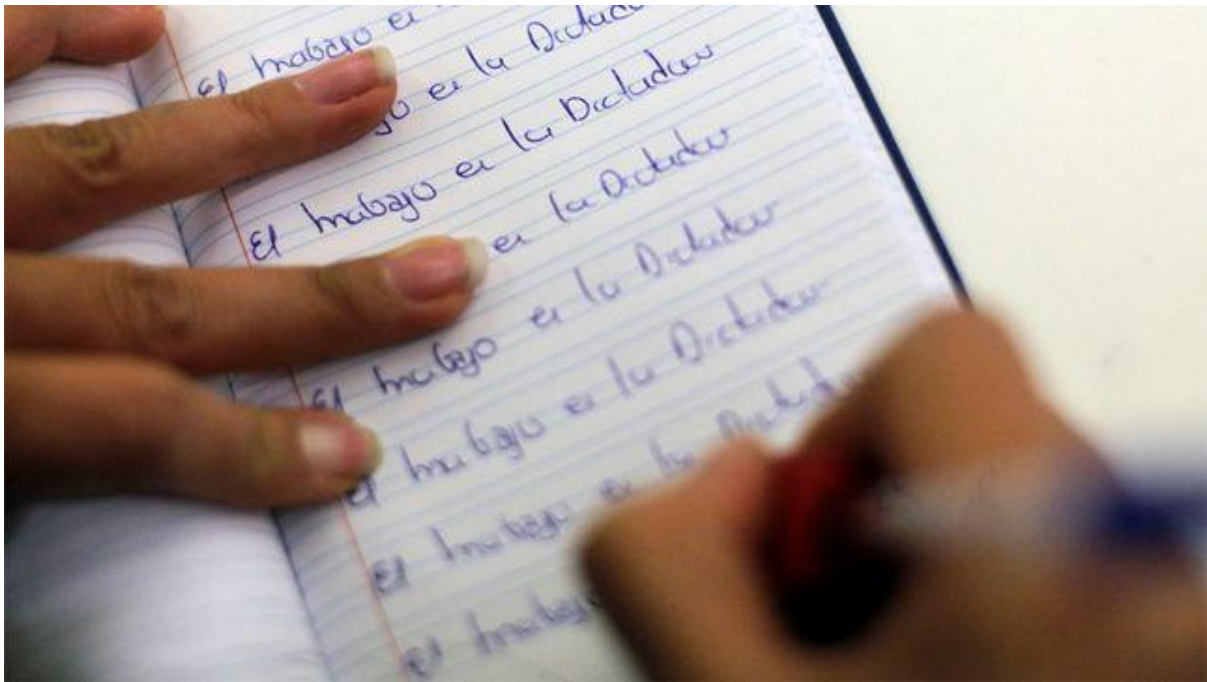 El trabajo es
jo es la Dictadu
El trabajo es la Dictadura
es la Dictadura
El trabajo es la Dictadura
El trabajo es la Dictadura
El trabajo es la Dictad
El trabajo